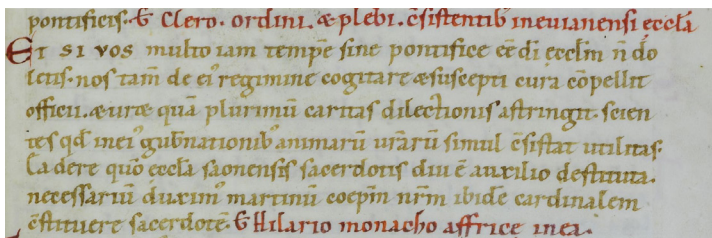 pontificis. G̃ Clero. ordini. & plebi. c̄sistentib; ineuianensi eccl̄a
ET SI VOS multo iam temp̄e sine pontifice eē di eccl̄m n̄ do
letis. nos tam̄ de ei᾿ regimine cogitare & suscepti cura cōpellit
officii. & urae quā plurimū caritas dilectionis astringit. scien
tes qđ inei᾿ gub̄nationib; animarū ur̄arū simul c̄sistat utilitas.
Cadere quō eccl̄a saonensis sacerdotis diu ē auxilio destituta.
necessariū duxim᾿ martinū coep̄m nr̄m ibidē cardinalem
c̄stituere sacerdotē. G̃ Hilario monacho affrice inea.